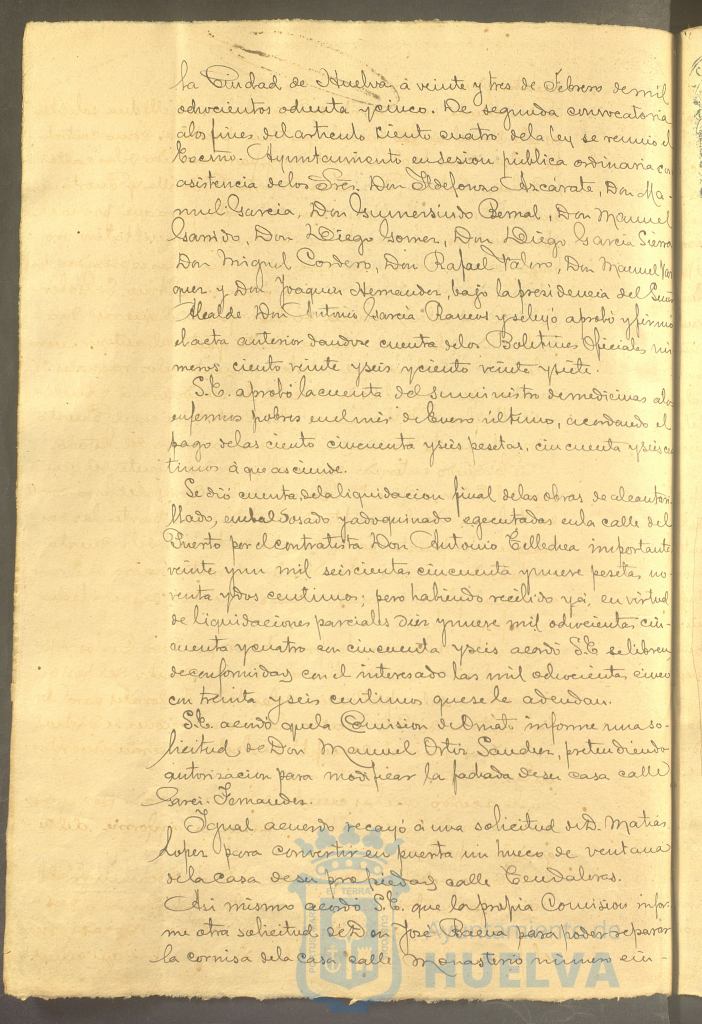 la Ciudad de Huelva, á veinte y tres de Febrero de mil
ochocientos ochenta y cinco. De segunda convocatoria
á los fines del articulo ciento cuatro de la ley se reunió el
Excmo. Ayuntamiento en sesion pública ordinaria con
asistencia de los Sres. Don Ildefonso Azcárate, Don Ma-
nuel Garcia, Don Gumersindo Bernal, Don Manuel
Garrido, Don Diego Gomez, Don Diego Garcia Sierra
Don Miguel Cordero, Don Rafael Valero, Don Manuel Vaz
quez y Don Joaquin Hernandez, bajo la presidencia del Señor
Alcalde Don Antonio Garcia Ramos y se leyó aprobó y firmó
el acta anterior dandose cuenta de los Boletines Oficiales nú
meros ciento veinte y seis y ciento veinte y siete.
S.E. aprobó la cuenta del suministro de medicinas a los
enfermos pobres en el mes de Enero último, acordando el
pago de las ciento cincuenta y seis pesetas, cincuenta y seis cen
timos á que asciende.
Se dió cuenta de la liquidacion final de las obras de alcantari-
llado, embaldosado y adoquinado egecutadas en la calle del
Puerto por el contratista Don Antonio Tellechea importante
veinte y un mil seiscientas cincuenta y nueve pesetas no-
venta y dos centimos; pero habiendo recibido ya, en virtud
de liquidaciones parciales Diez y nueve mil ochocientas cin-
cuenta y cuatro con cincuenta y seis acordó S.E. se libren
de conformidad con el interesado las mil ochocientas cinco
con treinta y seis centimos que se le adeudan.
S.E. acordó que la Comision de Ornato informe una so-
licitud de Don Manuel Ortiz Sanchez, pretendiendo
autorizacion para modificar la fachada de su casa calle
Garci-Fernandez.
Igual acuerdo recayó á una solicitud de D. Matias
Lopez para convertir en puerta un hueco de ventana
de la casa de su propiedad calle Tendaleras.
Asi mismo acordó S.E. que la propia Comision infor-
me otra solicitud de Don José Baeva para poder reparar
la cornisa de la casa calle Monasterio número cin-
Ayuntamiento de
HUELVA